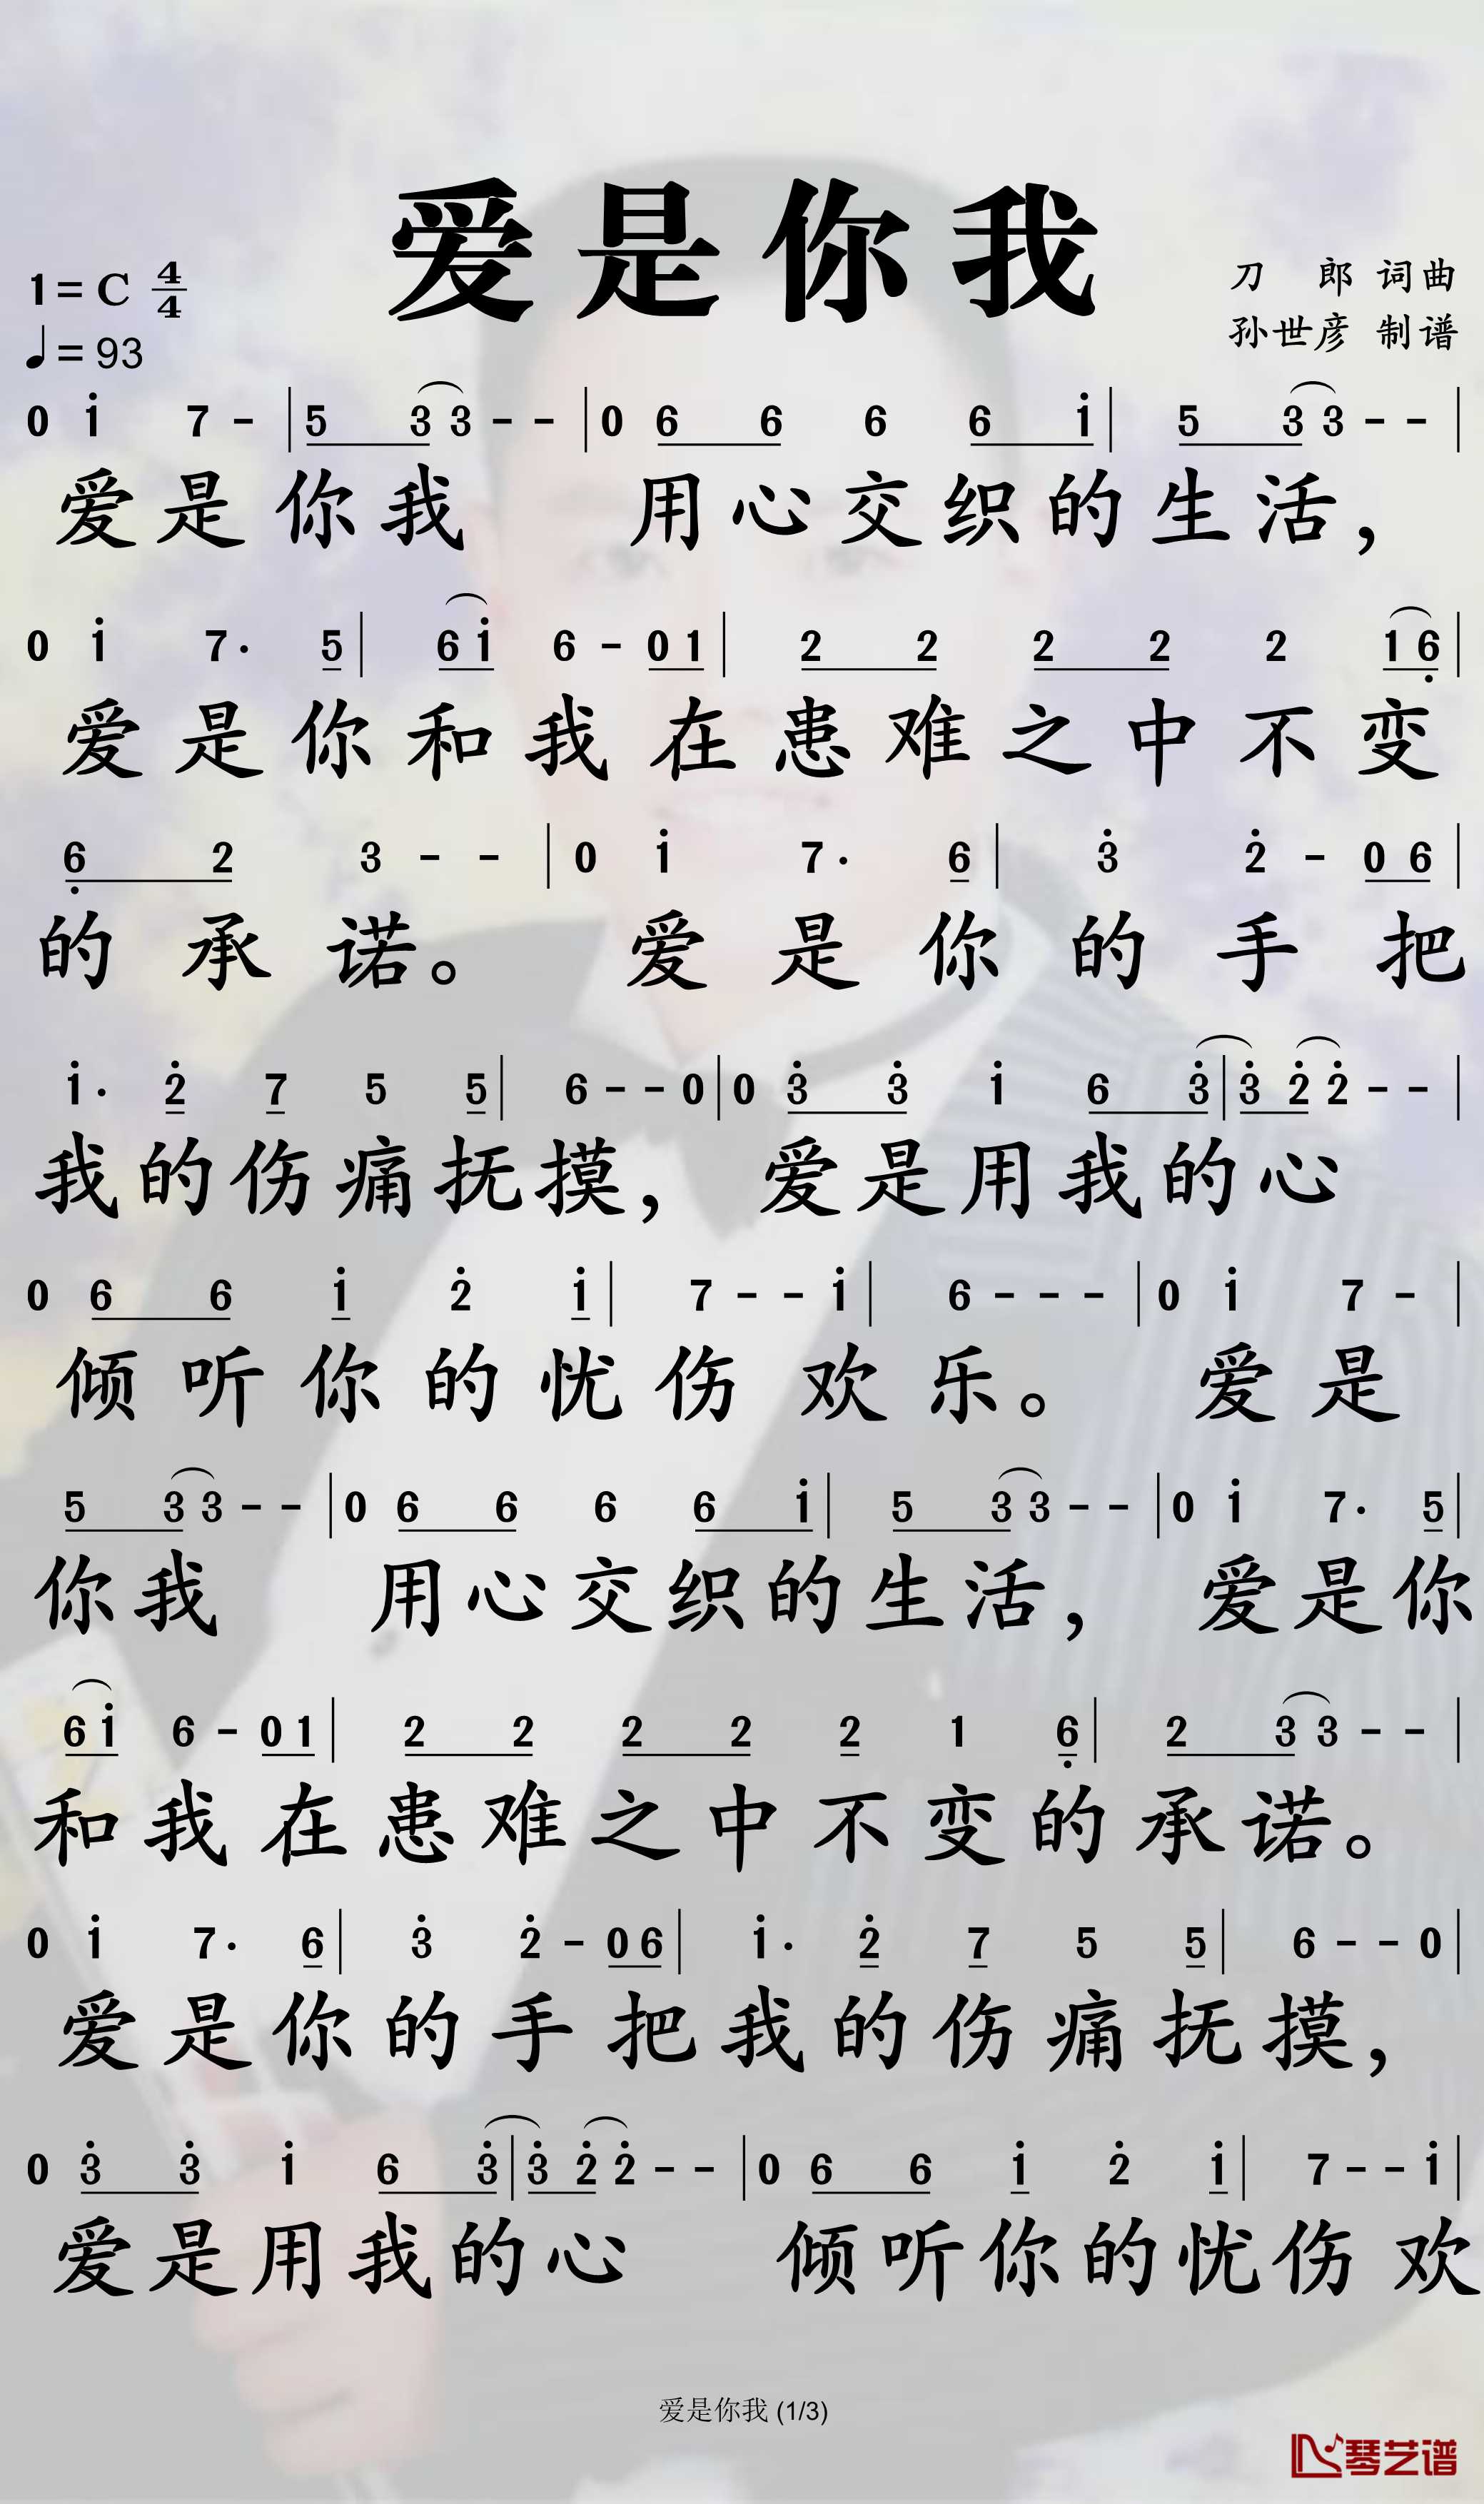 爱是你我
1=C 4/4
♩=93
刀 郎 词曲
孙世彦 制谱
0 i̇ 7 - | 5 3 3 - - | 0 6 6 6 6 i̇ | 5 3 3 - - |
爱是你我 用心交织的生活，
0 i̇ 7· 5 | 6 i̇ 6 - 0 1 | 2 2 2 2 2 1 6̣ |
爱是你和我在患难之中不变
6̣ 2 3 - - | 0 i̇ 7· 6 | 3̇ 2̇ - 0 6 |
的承诺。 爱是你的手把
i̇· 2̇ 7 5 5 | 6 - - 0 | 0 3̇ 3̇ i̇ 6 3̇ | 3̇ 2̇ 2̇ - - |
我的伤痛抚摸， 爱是用我的心
0 6 6 i̇ 2̇ i̇ | 7 - - i̇ | 6 - - - | 0 i̇ 7 - |
倾听你的忧伤欢乐。 爱是
5 3 3 - - | 0 6 6 6 6 i̇ | 5 3 3 - - | 0 i̇ 7· 5 |
你我 用心交织的生活， 爱是你
6 i̇ 6 - 0 1 | 2 2 2 2 2 1 6̣ | 2 3 3 - - |
和我在患难之中不变的承诺。
0 i̇ 7· 6 | 3̇ 2̇ - 0 6 | i̇· 2̇ 7 5 5 | 6 - - 0 |
爱是你的手把我的伤痛抚摸，
0 3̇ 3̇ i̇ 6 3̇ | 3̇ 2̇ 2̇ - - | 0 6 6 i̇ 2̇ i̇ | 7 - - i̇ |
爱是用我的心 倾听你的忧伤欢
爱是你我 (1/3)
琴艺谱